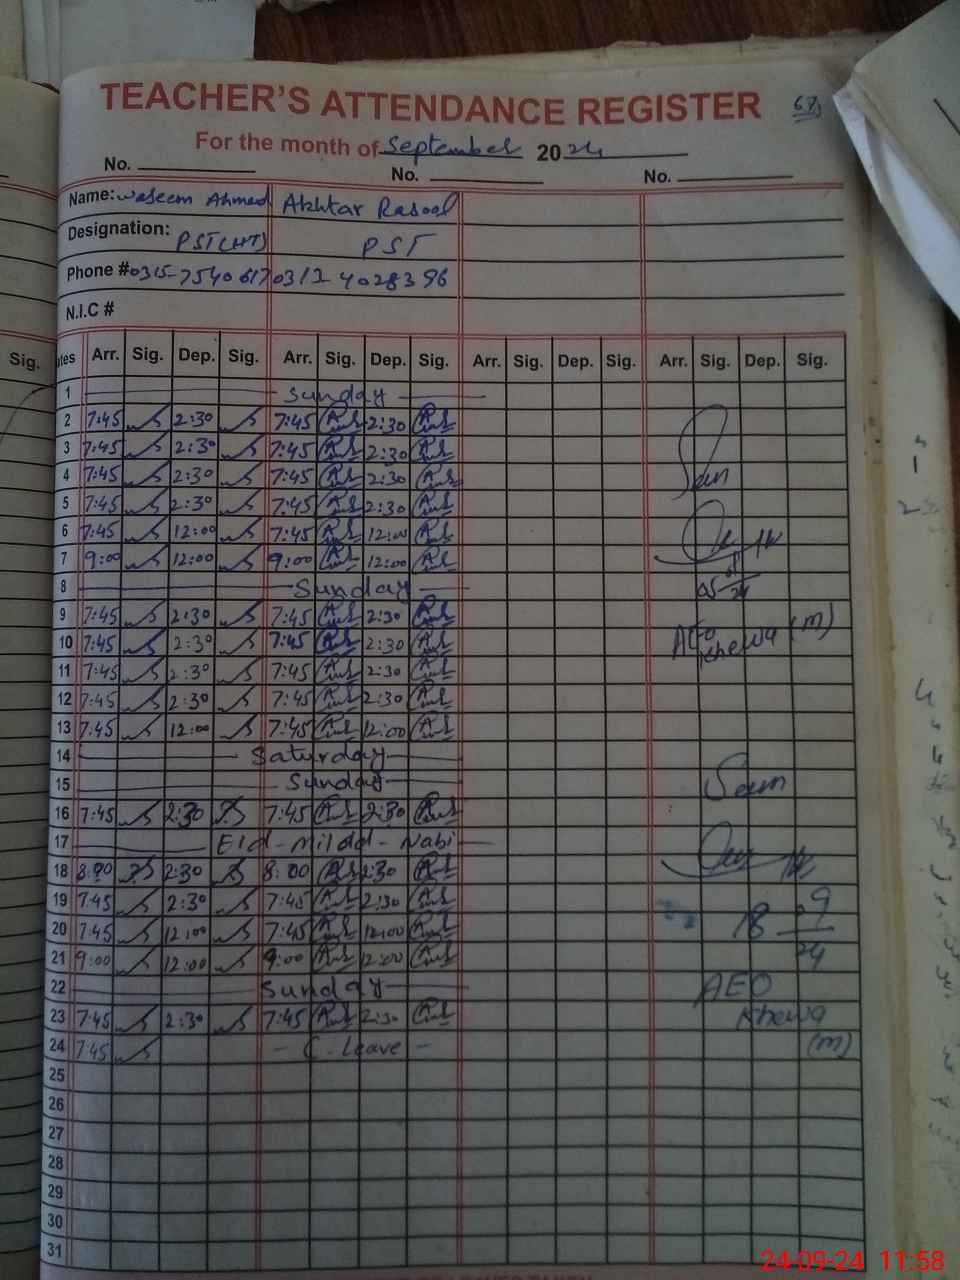 TEACHER'S ATTENDANCE REGISTER
For the month of September 2024
No. No. No.
Name: Waseem Ahmed Akhtar Rasool
Designation: PST(HT) PST
Phone # 0315-7540617 0312 4028396
N.I.C #
Sig. Arr. Sig. Dep. Sig. Arr. Sig. Dep. Sig. Arr. Sig. Dep. Sig. Arr. Sig. Dep. Sig.
1 Sunday
2 7:45 2:30 7:45 2:30
3 7:45 2:30 7:45 2:30
4 7:45 2:30 7:45 2:30
5 7:45 2:30 7:45 2:30
6 7:45 12:00 7:45 12:00
7 9:00 12:00 9:00 12:00
8 Sunday
9 7:45 2:30 7:45 2:30
10 7:45 2:30 7:45 2:30 AEO Khewa (m)
11 7:45 2:30 7:45 2:30
12 7:45 2:30 7:45 2:30
13 7:45 12:00 7:45 12:00
14 Saturday
15 Sunday
16 7:45 2:30 7:45 2:30
17 Eid-Milad-Nabi
18 8:00 2:30 8:00 2:30
19 7:45 2:30 7:45 2:30
20 7:45 12:00 7:45 12:00 18 09
21 9:00 12:00 9:00 12:00 24
22 Sunday AEO
23 7:45 2:30 7:45 2:30 Khewa
24 7:45 - C. Leave - (m)
25
26
27
28
29
30
31
24-09-24 11:58